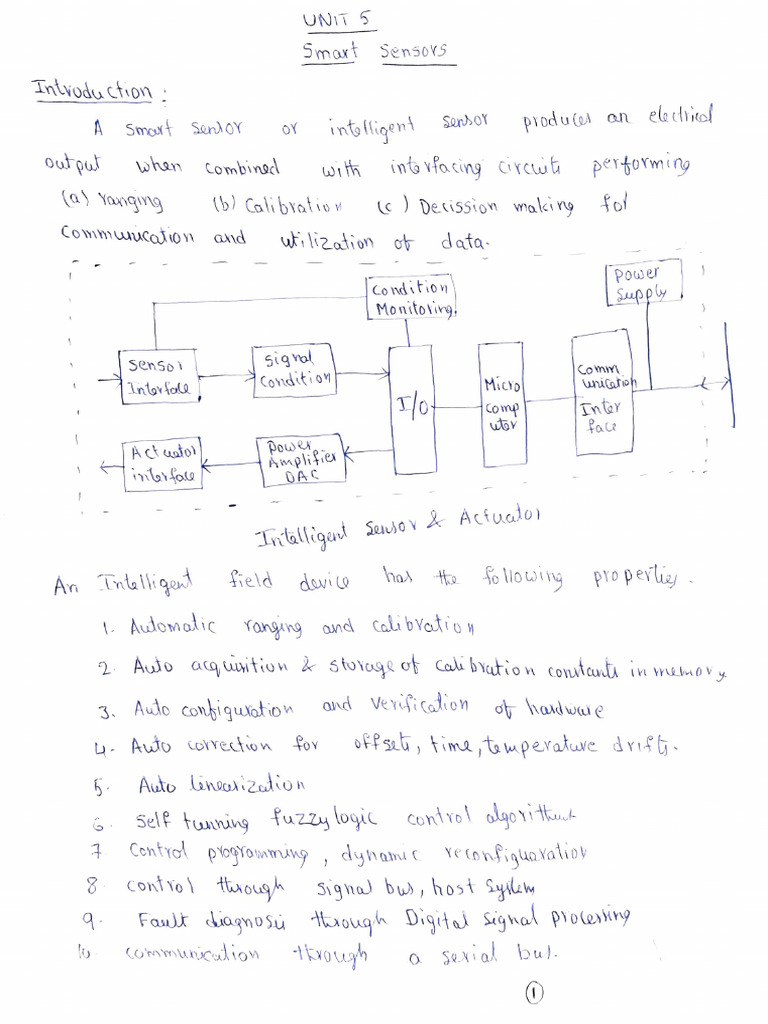 UNIT 5
Smart Sensors
Introduction :
A smart sensor or intelligent sensor produces an electrical
output when combined with interfacing circuits performing
(a) ranging (b) Calibration (c) Decission making for
communication and utilization of data.
Condition
Monitoring.
Power
Supply
Sensor
Interface
Signal
Condition
I/O
Micro
comp
uter
Comm
unication
Inter
face
Actuator
interface
Power
Amplifier
DAC
Intelligent Sensor & Actuator
An Intelligent field device has the following properties.
1. Automatic ranging and calibration
2. Auto acquisition & storage of calibration constants in memory
3. Auto configuration and verification of hardware
4. Auto correction for offsets, time, temperature drifts.
5. Auto linearization
6. Self tunning fuzzy logic control algorithms
7. Control programming, dynamic reconfiguaration
8. control through signal bus, host system
9. Fault diagnosis through Digital signal processing
10. communication through a serial bus.
1